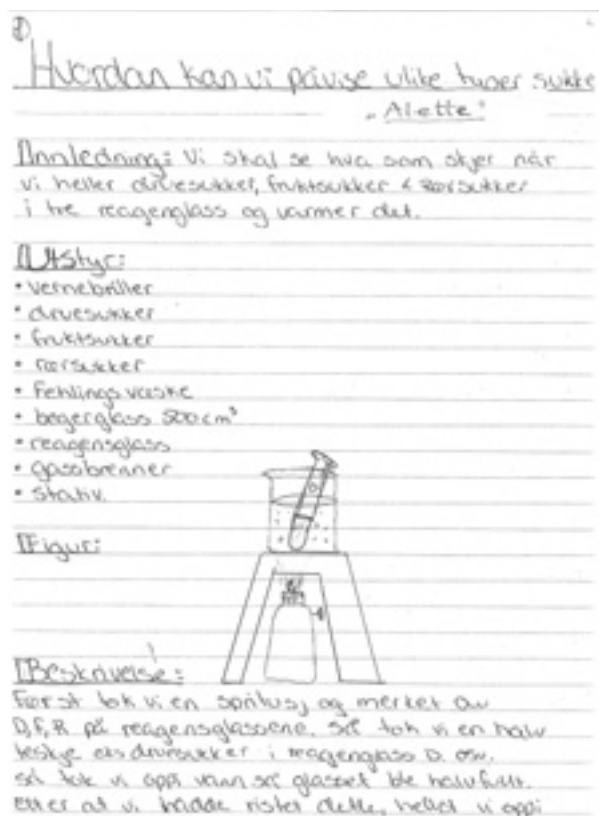 Hvordan kan vi påvise ulike typer sukke
"Alette"
Innledning: Vi skal se hva som skjer når
vi heller druesukker, fruktsukker & rørsukker
i tre reagenglass og varmer det.
Utstyr:
• vernebriller
• druesukker
• fruktsukker
• rørsukker
• Fehlings væske
• begerglass 500 cm³
• reagensglass
• gassbrenner
• stativ.
Figur:
Beskrivelse:
Først tok vi en spritusj og merket av
D, F, R på reagensglassene. Så tok vi en halv
teskje druesukker i reagenglass D. osv.
så tok vi oppi vann så glasset ble halvfullt.
Etter at vi hadde ristet dette, hellet vi oppi